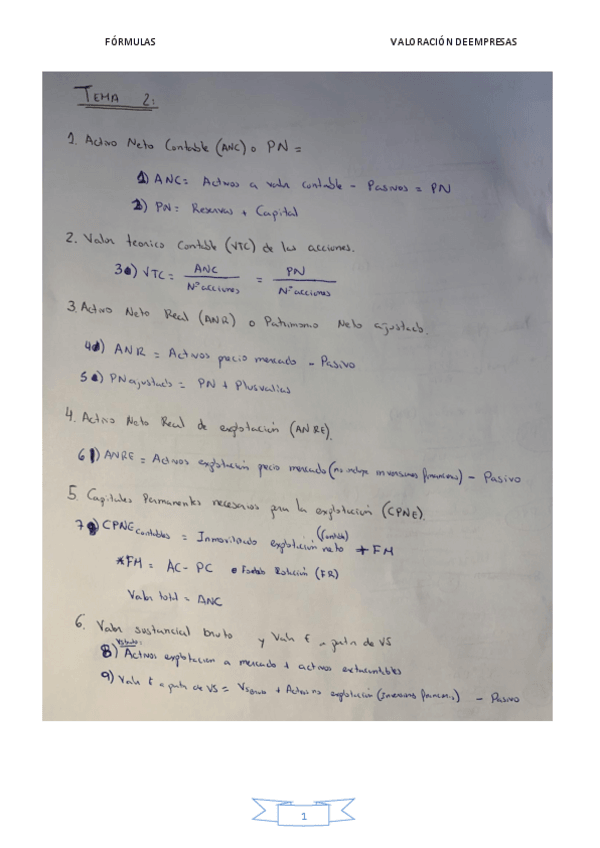 FÓRMULAS VALORACIÓN DE EMPRESAS
TEMA 2:
1. Activo Neto Contable (ANC) o PN =
1) ANC = Activos a valor contable - Pasivos = PN
2) PN = Reservas + Capital
2. Valor teorico contable (VTC) de las acciones.
3) VTC = ANC / Nº acciones = PN / Nº acciones
3. Activo Neto Real (ANR) o Patrimonio Neto ajustado.
4) ANR = Activos precio mercado - Pasivo
5) PN ajustado = PN + Plusvalias
4. Activo Neto Real de explotación (ANRE).
6) ANRE = Activos explotación precio mercado (no incluye inversiones financieras) - Pasivo
5. Capitales Permanentes necesarios para la explotación (CPNE).
7) CPNE contables = Inmovilizado explotación neto (contable) + FM
*FM = AC - PC o Fondo Rotación (FR)
Valor total = ANC
6. Valor sustancial bruto y Valor € a partir de VS
VSbruto:
8) Activos explotacion a mercado + activos extracontables
9) Valor € a partir de VS = VSbruto + Activo no explotación (Inversiones financieras) - Pasivo
1